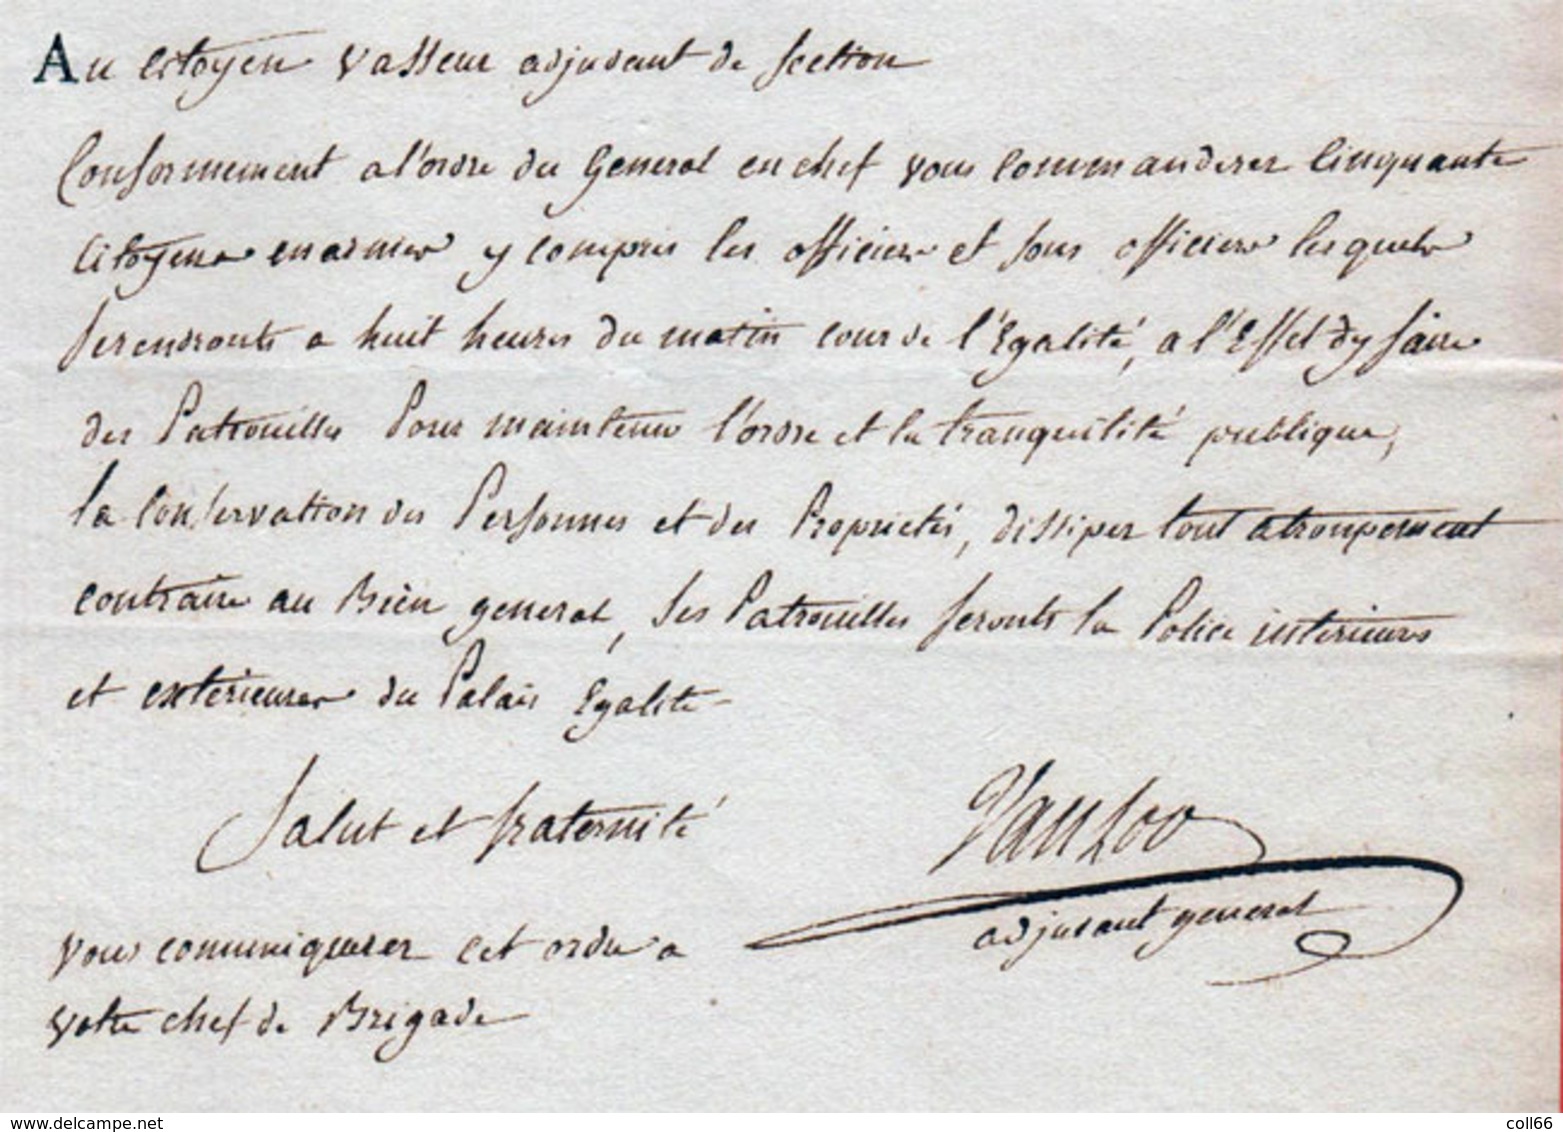 Au citoyen Vasseur adjudant de section
Conformement a l'ordre du General en chef vous commanderez cinquante
citoyens en armes y compris les officiers et sous officiers lesquels
se rendronts a huit heures du matin cour de l'Egalité, a l'Effet d'y faire
des Patrouilles Pour maintenir l'ordre et la tranquilité publique,
la conservation des Personnes et des Proprietés, dissiper tout atroupement
contraire au Bien general, ses Patrouilles feronts la Police interieures
et exterieures du Palais Egalité -
Salut et fraternité
Vanloo
adjudant general
vous communiquerez cet ordre a
votre chef de Brigade
delcampe.net
coll66